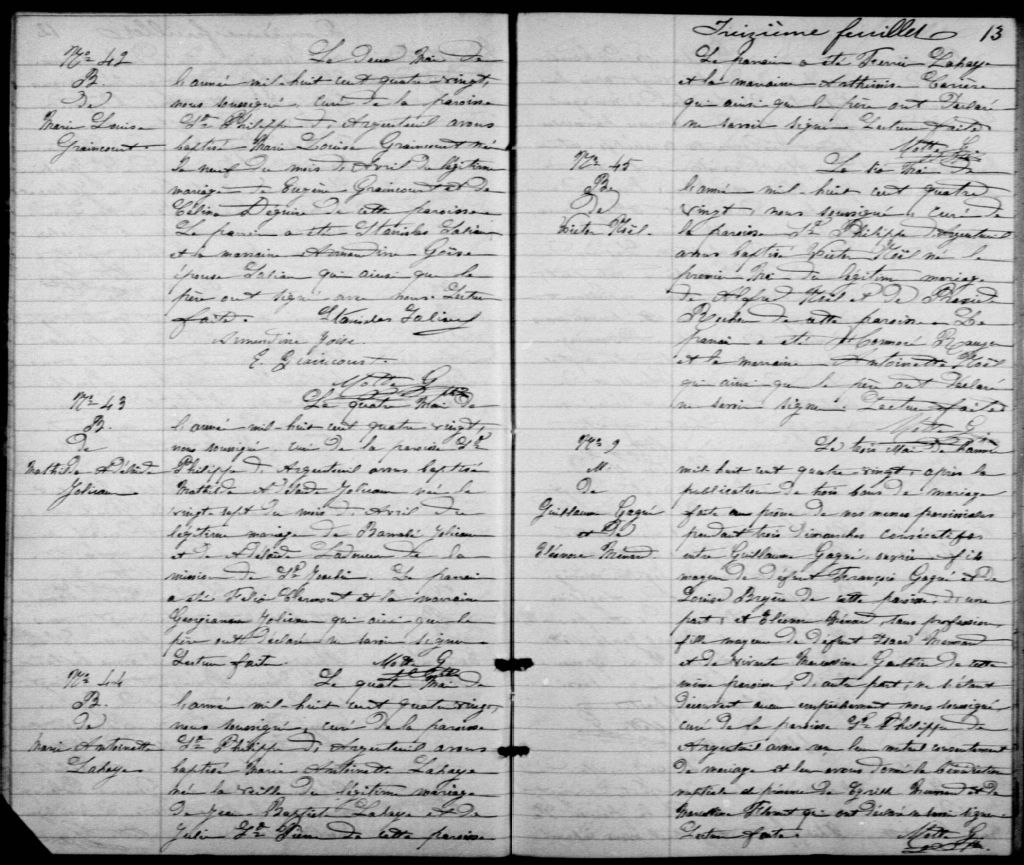 No 42
B
de
Marie Louise
Graincourt
Le deux Mai de
l'année mil-huit cent quatre vingt,
nous soussigné, curé de la paroisse
St Philippe d'Argenteuil avons
baptisé Marie Louise Graincourt né
le neuf du mois d'Avril du légitime
mariage de Eugène Graincourt et de
Célina de cette paroisse
Le parrain a été Stanislas Jalieu
et la marraine Armandine
épouse Jalieu qui ainsi que le
père ont signé avec nous. Lecture
faite. Stanislas Jalieu
Armandine
E. Graincourt
Motte G Ptre
No 43
B.
de
Mathilde Adélaïde
Jolicœur
Le quatre Mai de
l'année mil-huit cent quatre vingt,
nous soussigné curé de la paroisse St
Philippe d'Argenteuil avons baptisé
Mathilde Adélaïde Jolicœur née le
vingt sept du mois d'Avril du
légitime mariage de Barnabé Jolicœur
et de Adélaïde de la
mission de St. Le parrain
a été Félix Clermont et la marraine
Georgianna Jolicœur qui ainsi que le
père ont déclaré ne savoir signer
Lecture faite. Motte G
Ptre
No 44
B.
de
Marie Antoinette
Lahaye
Le quatre Mai de
l'année mil-huit cent quatre vingt,
nous soussigné, curé de la paroisse
St Philippe d'Argenteuil avons
baptisé Marie Antoinette Lahaye
né la veille du légitime mariage
de Jean Baptiste Lahaye et de
Julie St de cette paroisse
Treizième feuillet 13
Le parrain a été Lahaye
et la marraine Carrière
qui ainsi que le père ont déclaré
ne savoir signer Lecture faite
Motte G. Ptre
No 45
B
de
Victor Noël.
Le six Mai de
l'année mil-huit cent quatre
vingt, nous soussigné, curé de
la paroisse St Philippe d'Argenteuil
avons baptisé Victor Noël né le
premier du légitime mariage
de Alfred Noël et de
de cette paroisse. Le
parrain a été
et la marraine Antoinette Noël
qui ainsi que le père ont déclaré
ne savoir signer. Lecture faite
Motte G.
No 9
M.
de
Guillaume Gagné
et de
Eléonore Ménard
Le trois Mai de l'année
mil huit cent quatre vingt, après la
publication de trois bans de mariage
faite au prône de nos messes paroissiales
pendant trois dimanches consécutifs
entre Guillaume Gagné ouvrier, fils
majeur de défunt François Gagné et de
Louise de cette paroisse d'une
part; et Ménard, sans profession,
fille majeure de défunt Isaac Ménard
et de vivante Gauthier de cette
même paroisse, d'autre part, ne s'étant
découvert aucun empêchement nous soussigné
curé de la paroisse St Philippe de
Argenteuil avons reçu leur mutuel consentement
de mariage et leur avons donné la bénédiction
nuptiale en présence de Ménard et de
qui ont déclaré ne savoir signer
Lecture faite. Motte G.
Ptre